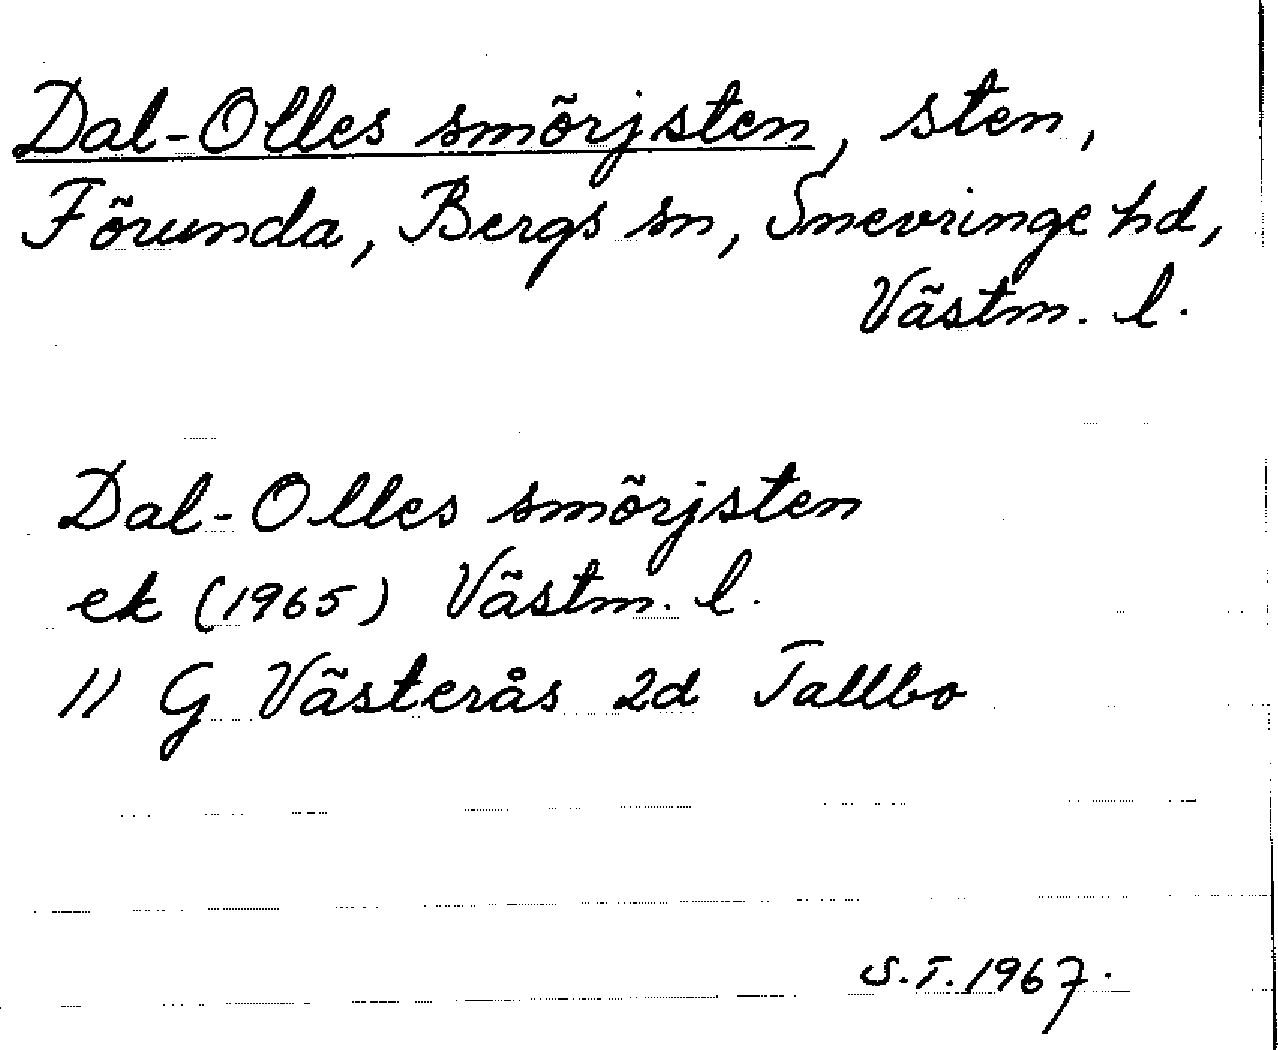 Dal-Olles smörjsten, sten,
Förunda, Bergs sn, Snevringe hd,
Västm. l.
Dal-Olles smörjsten
ek (1965) Västm. l.
11 G Västerås 2d Tallbo
S.T. 1967.